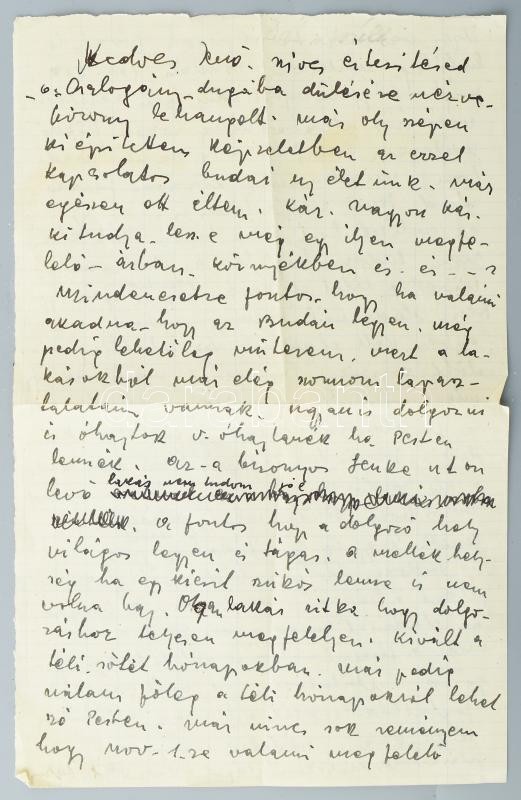 Kedves Jenő. nives értesitésed
a Csalogány-dugába dülésére nézve
bizony lehangolt. már oly szépen
kiépitettem képzeletben az ezzel
kapcsolatos budai uj életünk. már
egészen ott éltem. Kár. nagyon kár.
ki tudja. lesz e még egy ilyen megfe-
lelő - árban. környékben és. és - - ?
Mindenesetre fontos. hogy ha valami
akadna - hogy az Budán legyen. még
pedig lehetőleg műterem. mert a la-
kásokból már elég szomorú tapasz-
talataim vannak. ugyanis dolgozni
is óhajtok v. óhajtanék ha Pesten
lennék. az - a bizonyos Lenke uton
levő lakás nem tudom
a fontos hogy a dolgozó hely
világos legyen és tágas. a mellék hely-
ség ha egy kicsit szűkös lenne is nem
volna baj. Olyan lakás ritka hogy dolgo-
záshoz teljesen megfeleljen. Kivált a
téli. sötét hónapokban. már pedig
nálam főleg a téli hónapokról lehet
szó Pesten. már nincs sok reményem
hogy nov. 1.-re valami megfelelő
darabanth